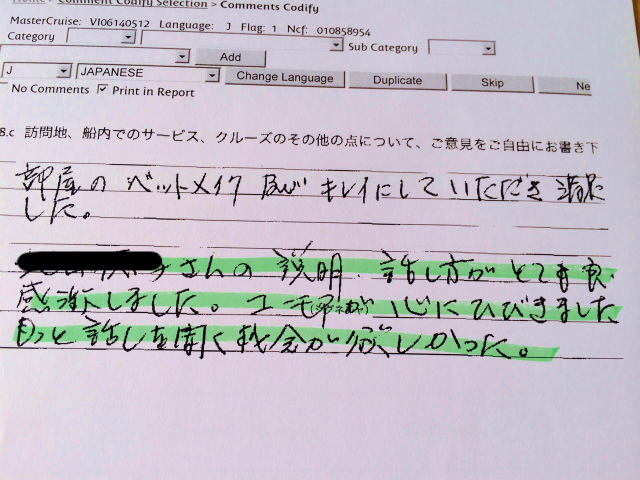 Home > Comment Codify Selection > Comments Codify
MasterCruise: VI06140512 Language: J Flag: 1 Ncf: 010858954
Category Sub Category
Add
J JAPANESE Change Language Duplicate Skip Ne
No Comments Print in Report
8.c 訪問地、船内でのサービス、クルーズのその他の点について、ご意見をご自由にお書き下
部屋のベットメイク及びキレイにしていただき満足
した。
さんの説明、話し方がとても良
感激しました。ユーモアが 心にひびきました
もっと話しを聞く机会が欲しかった。